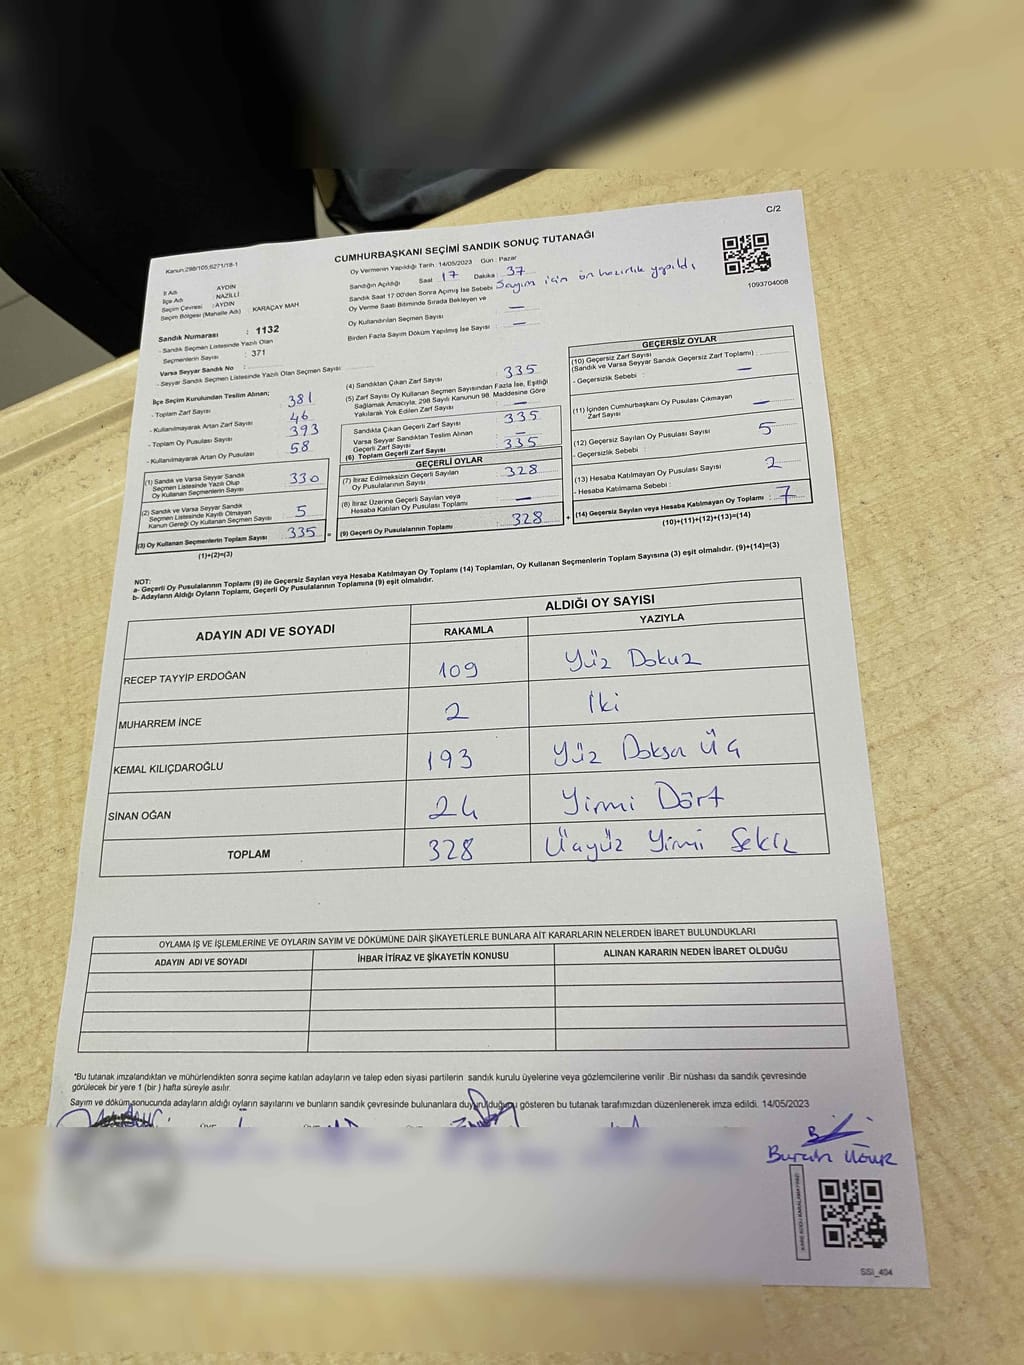 C/2
Kanun:298/105,6271/18-1
CUMHURBAŞKANI SEÇİMİ SANDIK SONUÇ TUTANAĞI
1093704008
İl Adı : AYDIN
İlçe Adı : NAZİLLİ
Seçim Çevresi : AYDIN
Seçim Bölgesi (Mahalle Adı) KARAÇAY MAH
Sandık Numarası : 1132
- Sandık Seçmen Listesinde Yazılı Olan
Seçmenlerin Sayısı : 371
Varsa Seyyar Sandık No :
- Seyyar Sandık Seçmen Listesinde Yazılı Olan Seçmen Sayısı
Oy Vermenin Yapıldığı Tarih : 14/05/2023 Gün : Pazar
Sandığın Açıldığı Saat 17 Dakika : 37
Sandık Saat 17:00'den Sonra Açımış İse Sebebi Sayım için ön hazırlık yapıldı
Oy Verme Saati Bitiminde Sırada Bekleyen ve
Oy Kullandırılan Seçmen Sayısı : —
Birden Fazla Sayım Döküm Yapılmış İse Sayısı : —
İlçe Seçim Kurulundan Teslim Alınan;
- Toplam Zarf Sayısı 381
- Kullanılmayarak Artan Zarf Sayısı 46
- Toplam Oy Pusulası Sayısı 393
- Kullanılmayarak Artan Oy Pusulası 58
(1) Sandık ve Varsa Seyyar Sandık
Seçmen Listesinde Yazılı Olup
Oy Kullanan Seçmenlerin Sayısı 330
(2) Sandık ve Varsa Seyyar Sandık
Seçmen Listesinde Kayıtlı Olmayan
Kanun Gereği Oy Kullanan Seçmen Sayısı 5
(3) Oy Kullanan Seçmenlerin Toplam Sayısı 335 =
(1)+(2)=(3)
(4) Sandıktan Çıkan Zarf Sayısı 335
(5) Zarf Sayısı Oy Kullanan Seçmen Sayısından Fazla İse, Eşitliği
Sağlamak Amacıyla, 298 Sayılı Kanunun 98. Maddesine Göre
Yakılarak Yok Edilen Zarf Sayısı : —
Sandıkta Çıkan Geçerli Zarf Sayısı 335
Varsa Seyyar Sandıktan Teslim Alınan
Geçerli Zarf Sayısı —
(6) Toplam Geçerli Zarf Sayısı 335
GEÇERLİ OYLAR
(7) İtiraz Edilmeksizin Geçerli Sayılan
Oy Pusulalarının Sayısı 328
(8) İtiraz Üzerine Geçerli Sayılan veya
Hesaba Katılan Oy Pusulası Toplamı —
(9) Geçerli Oy Pusulalarının Toplamı 328 +
GEÇERSİZ OYLAR
(10) Geçersiz Zarf Sayısı
(Sandık ve Varsa Seyyar Sandık Geçersiz Zarf Toplamı) :
- Geçersizlik Sebebi : —
(11) İçinden Cumhurbaşkanı Oy Pusulası Çıkmayan
Zarf Sayısı —
(12) Geçersiz Sayılan Oy Pusulası Sayısı 5
- Geçersizlik Sebebi :
(13) Hesaba Katılmayan Oy Pusulası Sayısı 2
- Hesaba Katılmama Sebebi :
(14) Geçersiz Sayılan veya Hesaba Katılmayan Oy Toplamı : 7
(10)+(11)+(12)+(13)=(14)
NOT:
a- Geçerli Oy Pusulalarının Toplamı (9) ile Geçersiz Sayılan veya Hesaba Katılmayan Oy Toplamı (14) Toplamları, Oy Kullanan Seçmenlerin Toplam Sayısına (3) eşit olmalıdır. (9)+(14)=(3)
b- Adayların Aldığı Oyların Toplamı, Geçerli Oy Pusulalarının Toplamına (9) eşit olmalıdır.
ADAYIN ADI VE SOYADI
ALDIĞI OY SAYISI
RAKAMLA YAZIYLA
RECEP TAYYİP ERDOĞAN 109 Yüz Dokuz
MUHARREM İNCE 2 İki
KEMAL KILIÇDAROĞLU 193 Yüz Doksa Üç
SİNAN OĞAN 24 Yirmi Dört
TOPLAM 328 Üçyüz Yirmi Sekiz
OYLAMA İŞ VE İŞLEMLERİNE VE OYLARIN SAYIM VE DÖKÜMÜNE DAİR ŞİKAYETLERLE BUNLARA AİT KARARLARIN NELERDEN İBARET BULUNDUKLARI
ADAYIN ADI VE SOYADI İHBAR İTİRAZ VE ŞİKAYETİN KONUSU ALINAN KARARIN NEDEN İBARET OLDUĞU
*Bu tutanak imzalandıktan ve mühürlendikten sonra seçime katılan adayların ve talep eden siyasi partilerin sandık kurulu üyelerine veya gözlemcilerine verilir .Bir nüshası da sandık çevresinde
görülecek bir yere 1 (bir ) hafta süreyle asılır.
Sayım ve döküm sonucunda adayların aldığı oyların sayılarını ve bunların sandık çevresinde bulunanlara duyurulduğunu gösteren bu tutanak tarafımızdan düzenlenerek imza edildi. 14/05/2023
SSI_404